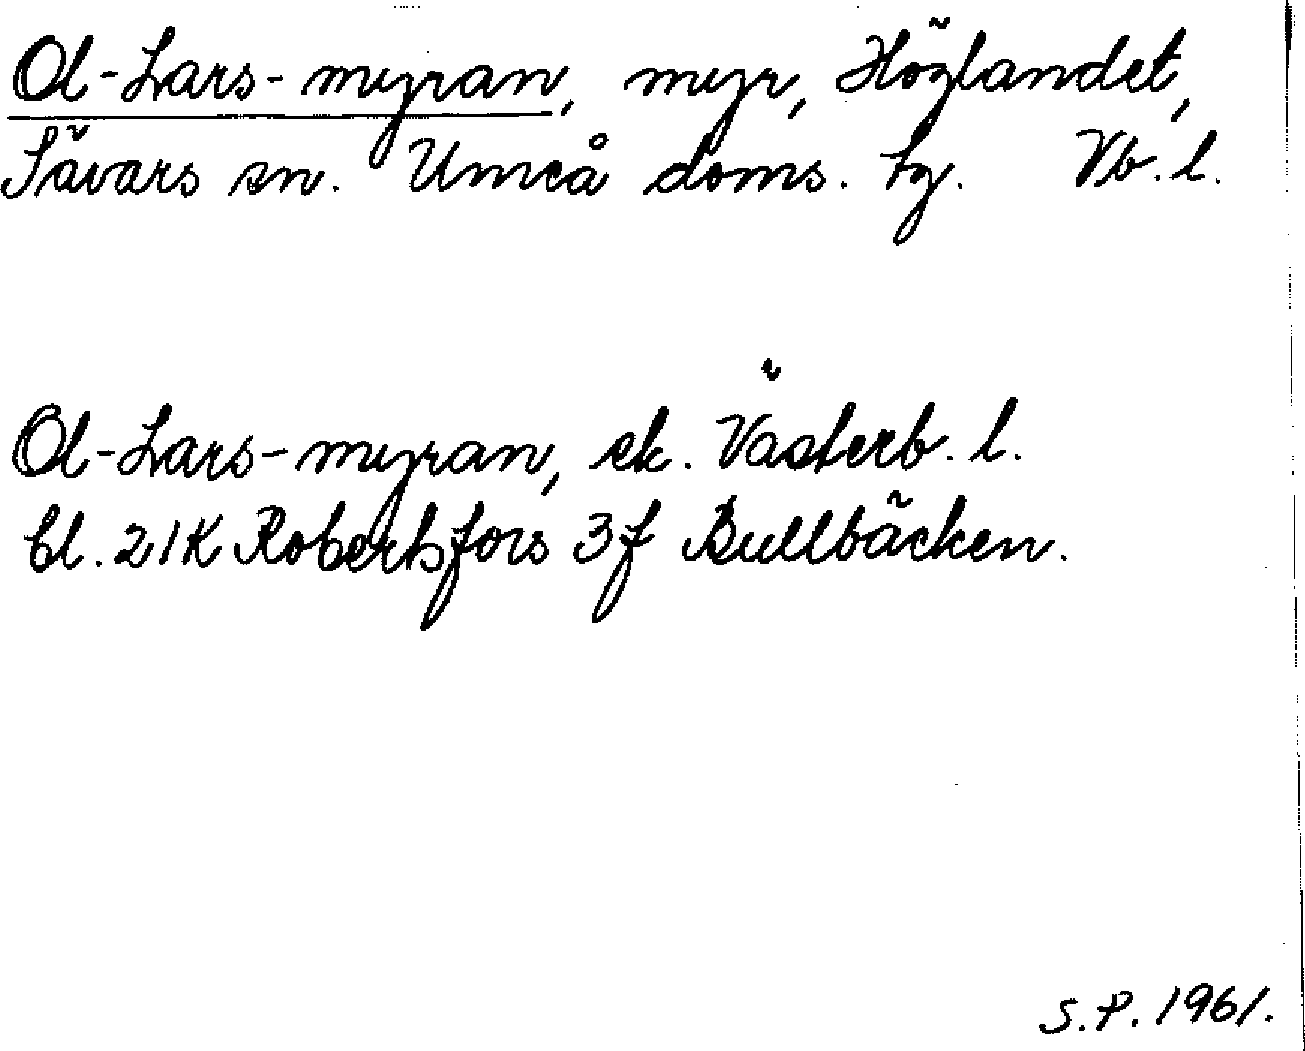 Ol-Lars-myran, myr, Höglandet,
Sävars sn. Umeå doms. tg. Vb. l.
Ol-Lars-myran, ek. Västerb. l.
bl. 21K Robertsfors 3f Bullbäcken.
S.P. 1961.